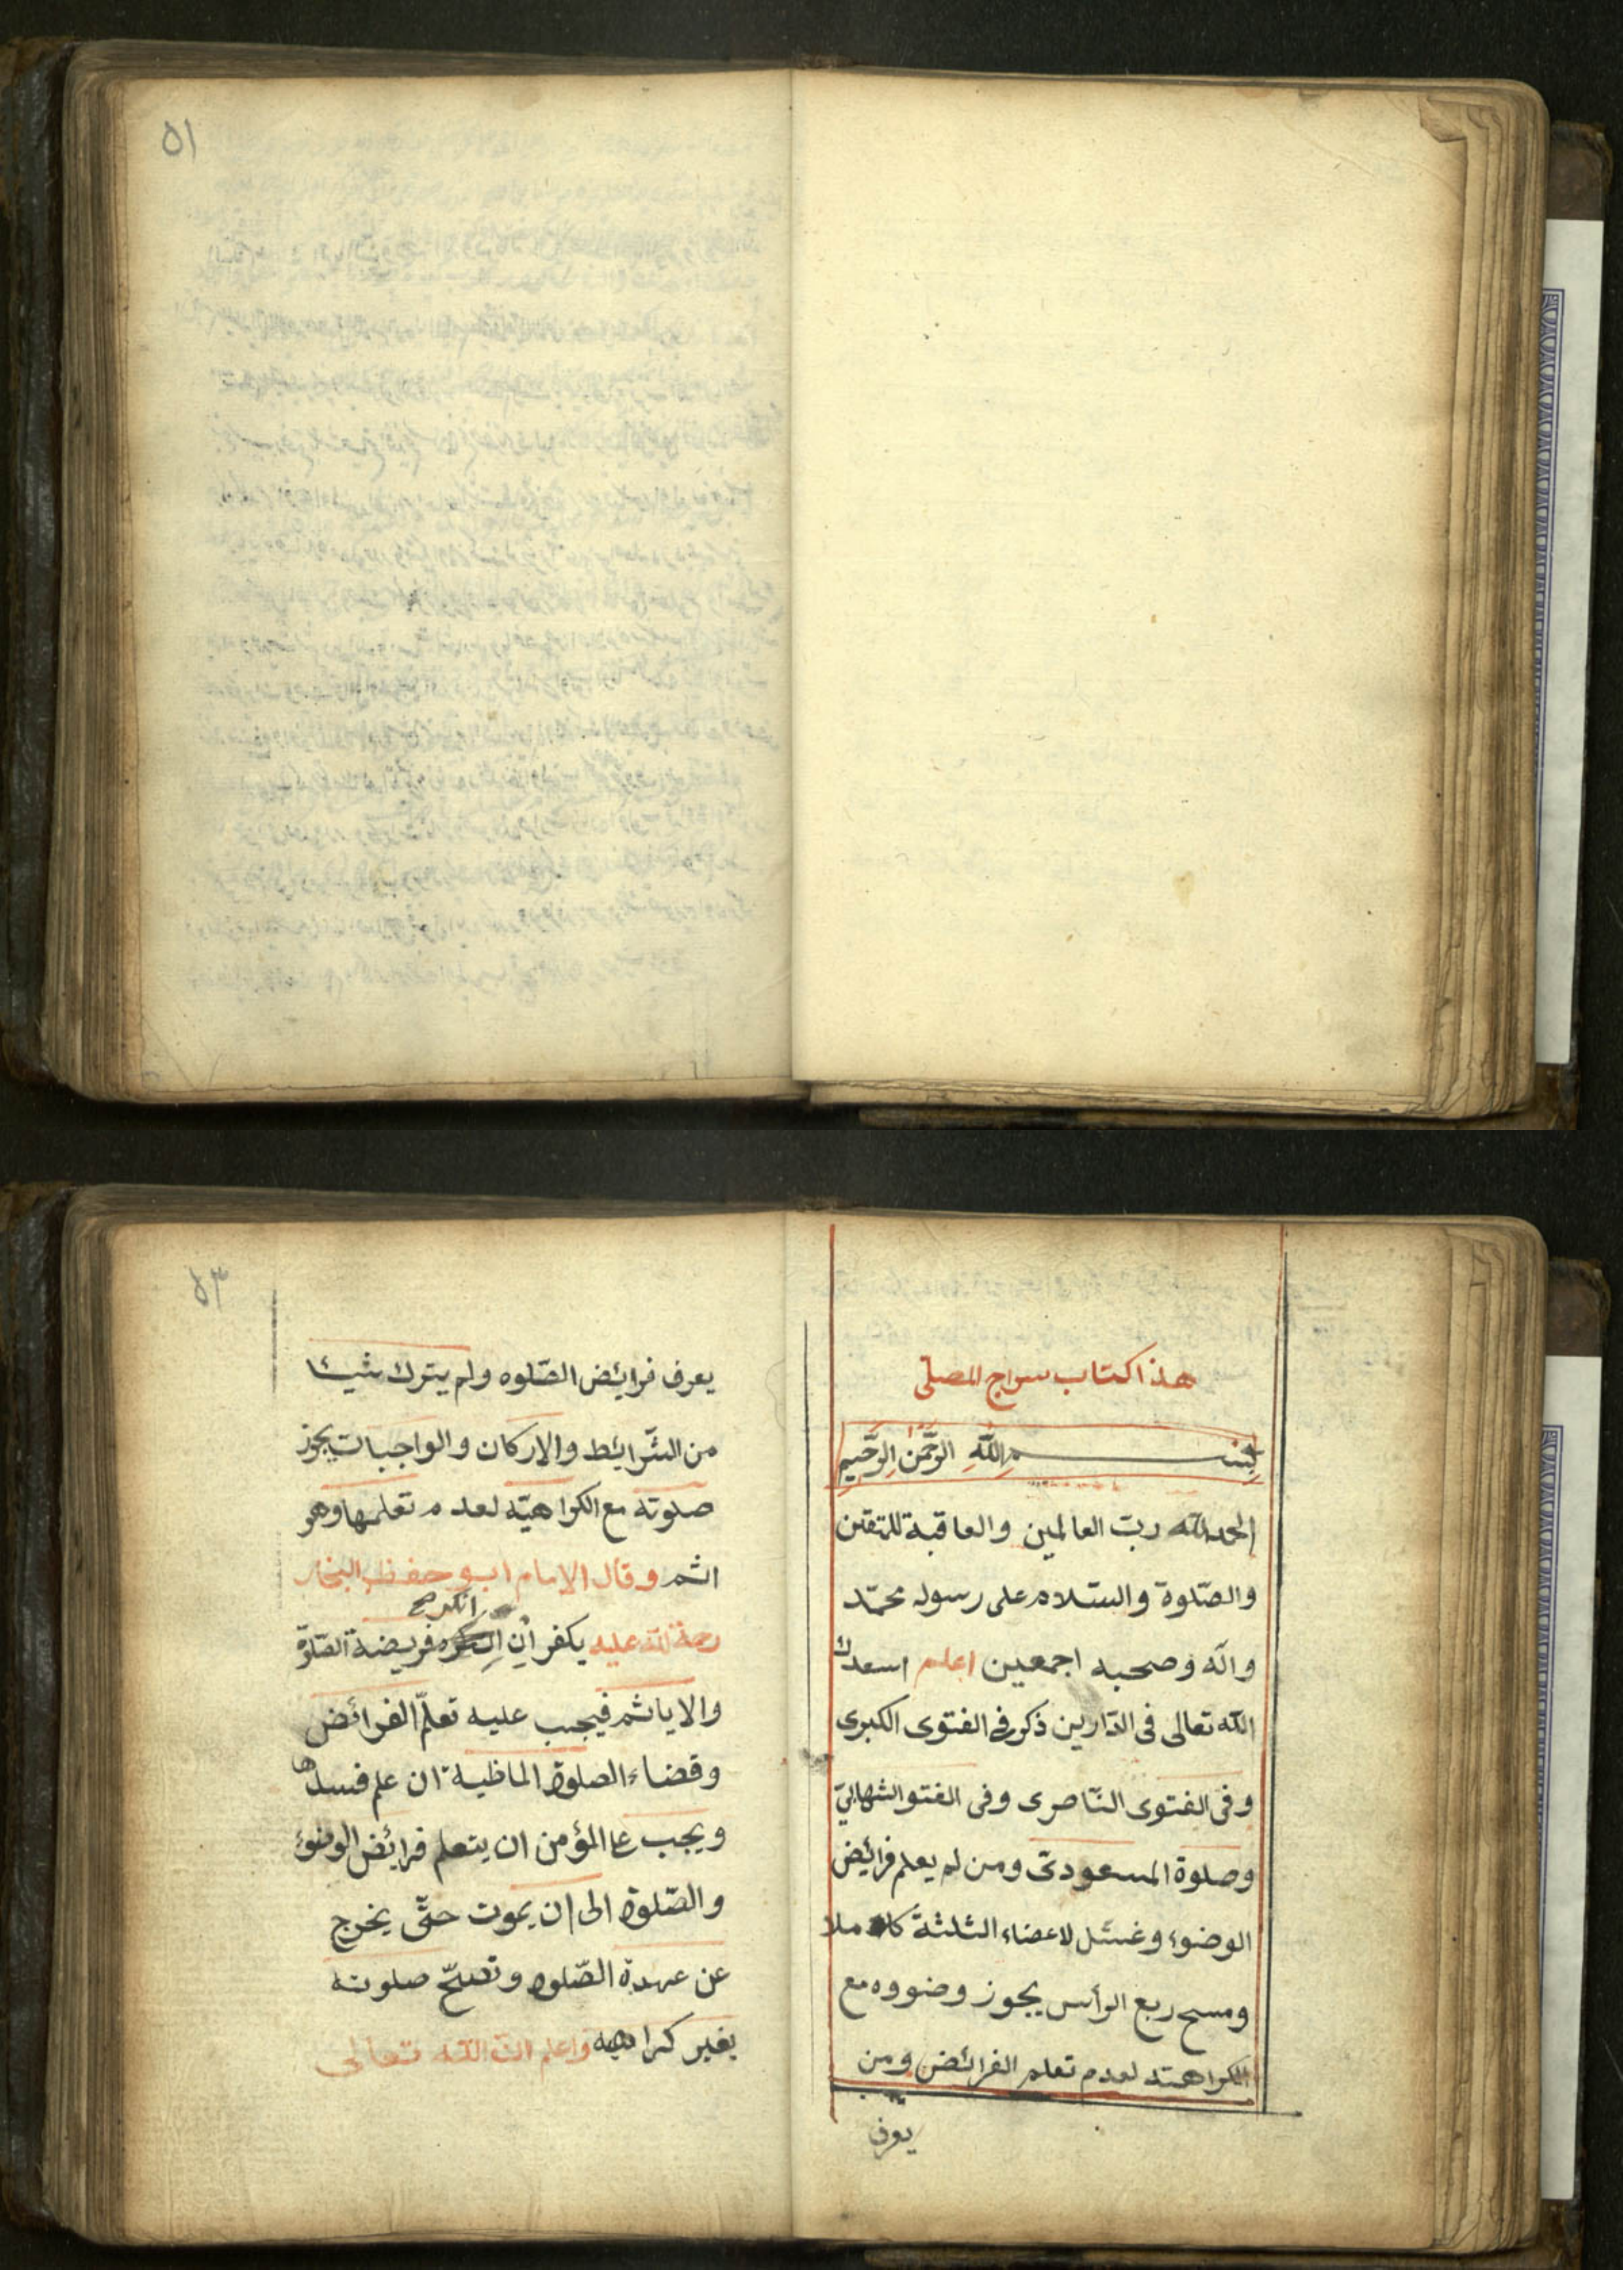 ٥١
هذا كتاب سراج المصلى
بسم الله الرحمن الرحيم
الحمد لله رب العالمين والعاقبة للمتقين
والصّلوة والسّلام على رسوله محمّد
واله وصحبه اجمعين اعلم اسعدك
الله تعالى فى الدّارين ذكر فى الفتوى الكبرى
وفى الفتوى النّاصرى وفى الفتو الشهابىّ
وصلوة المسعودىّ ومن لم يعلم فرائض
الوضوء وغسل لاعضاء الثلثة كاملا
ومسح ربع الرأس يجوز وضووه مع
الكراهتد لعدم تعلم الفرائض ومن
يعرف
٥٣
يعرف فرايئض الصّلوه ولم يترك شيئا
من الشّرايئط والاركان والواجبات يجوز
صلوته مع الكراهيّه لعدم تعلمها وهو
اثم وقال الامام ابو حفظ البخار
انكر صح
رحمة الله عليه يكفر أن فريضة الصّلوة
والا ياثم فيجب عليه تعلّم الفرائض
وقضاء الصلوة الماظية ان علم فسدها
ويجب على المؤمن ان يتعلم فرائض الوضوء
والصّلوة الى ان يموت حتّى يخرج
عن عهدة الصّلوة وتصحّ صلوته
بغير كراهيه واعلم انّ الله تعالى